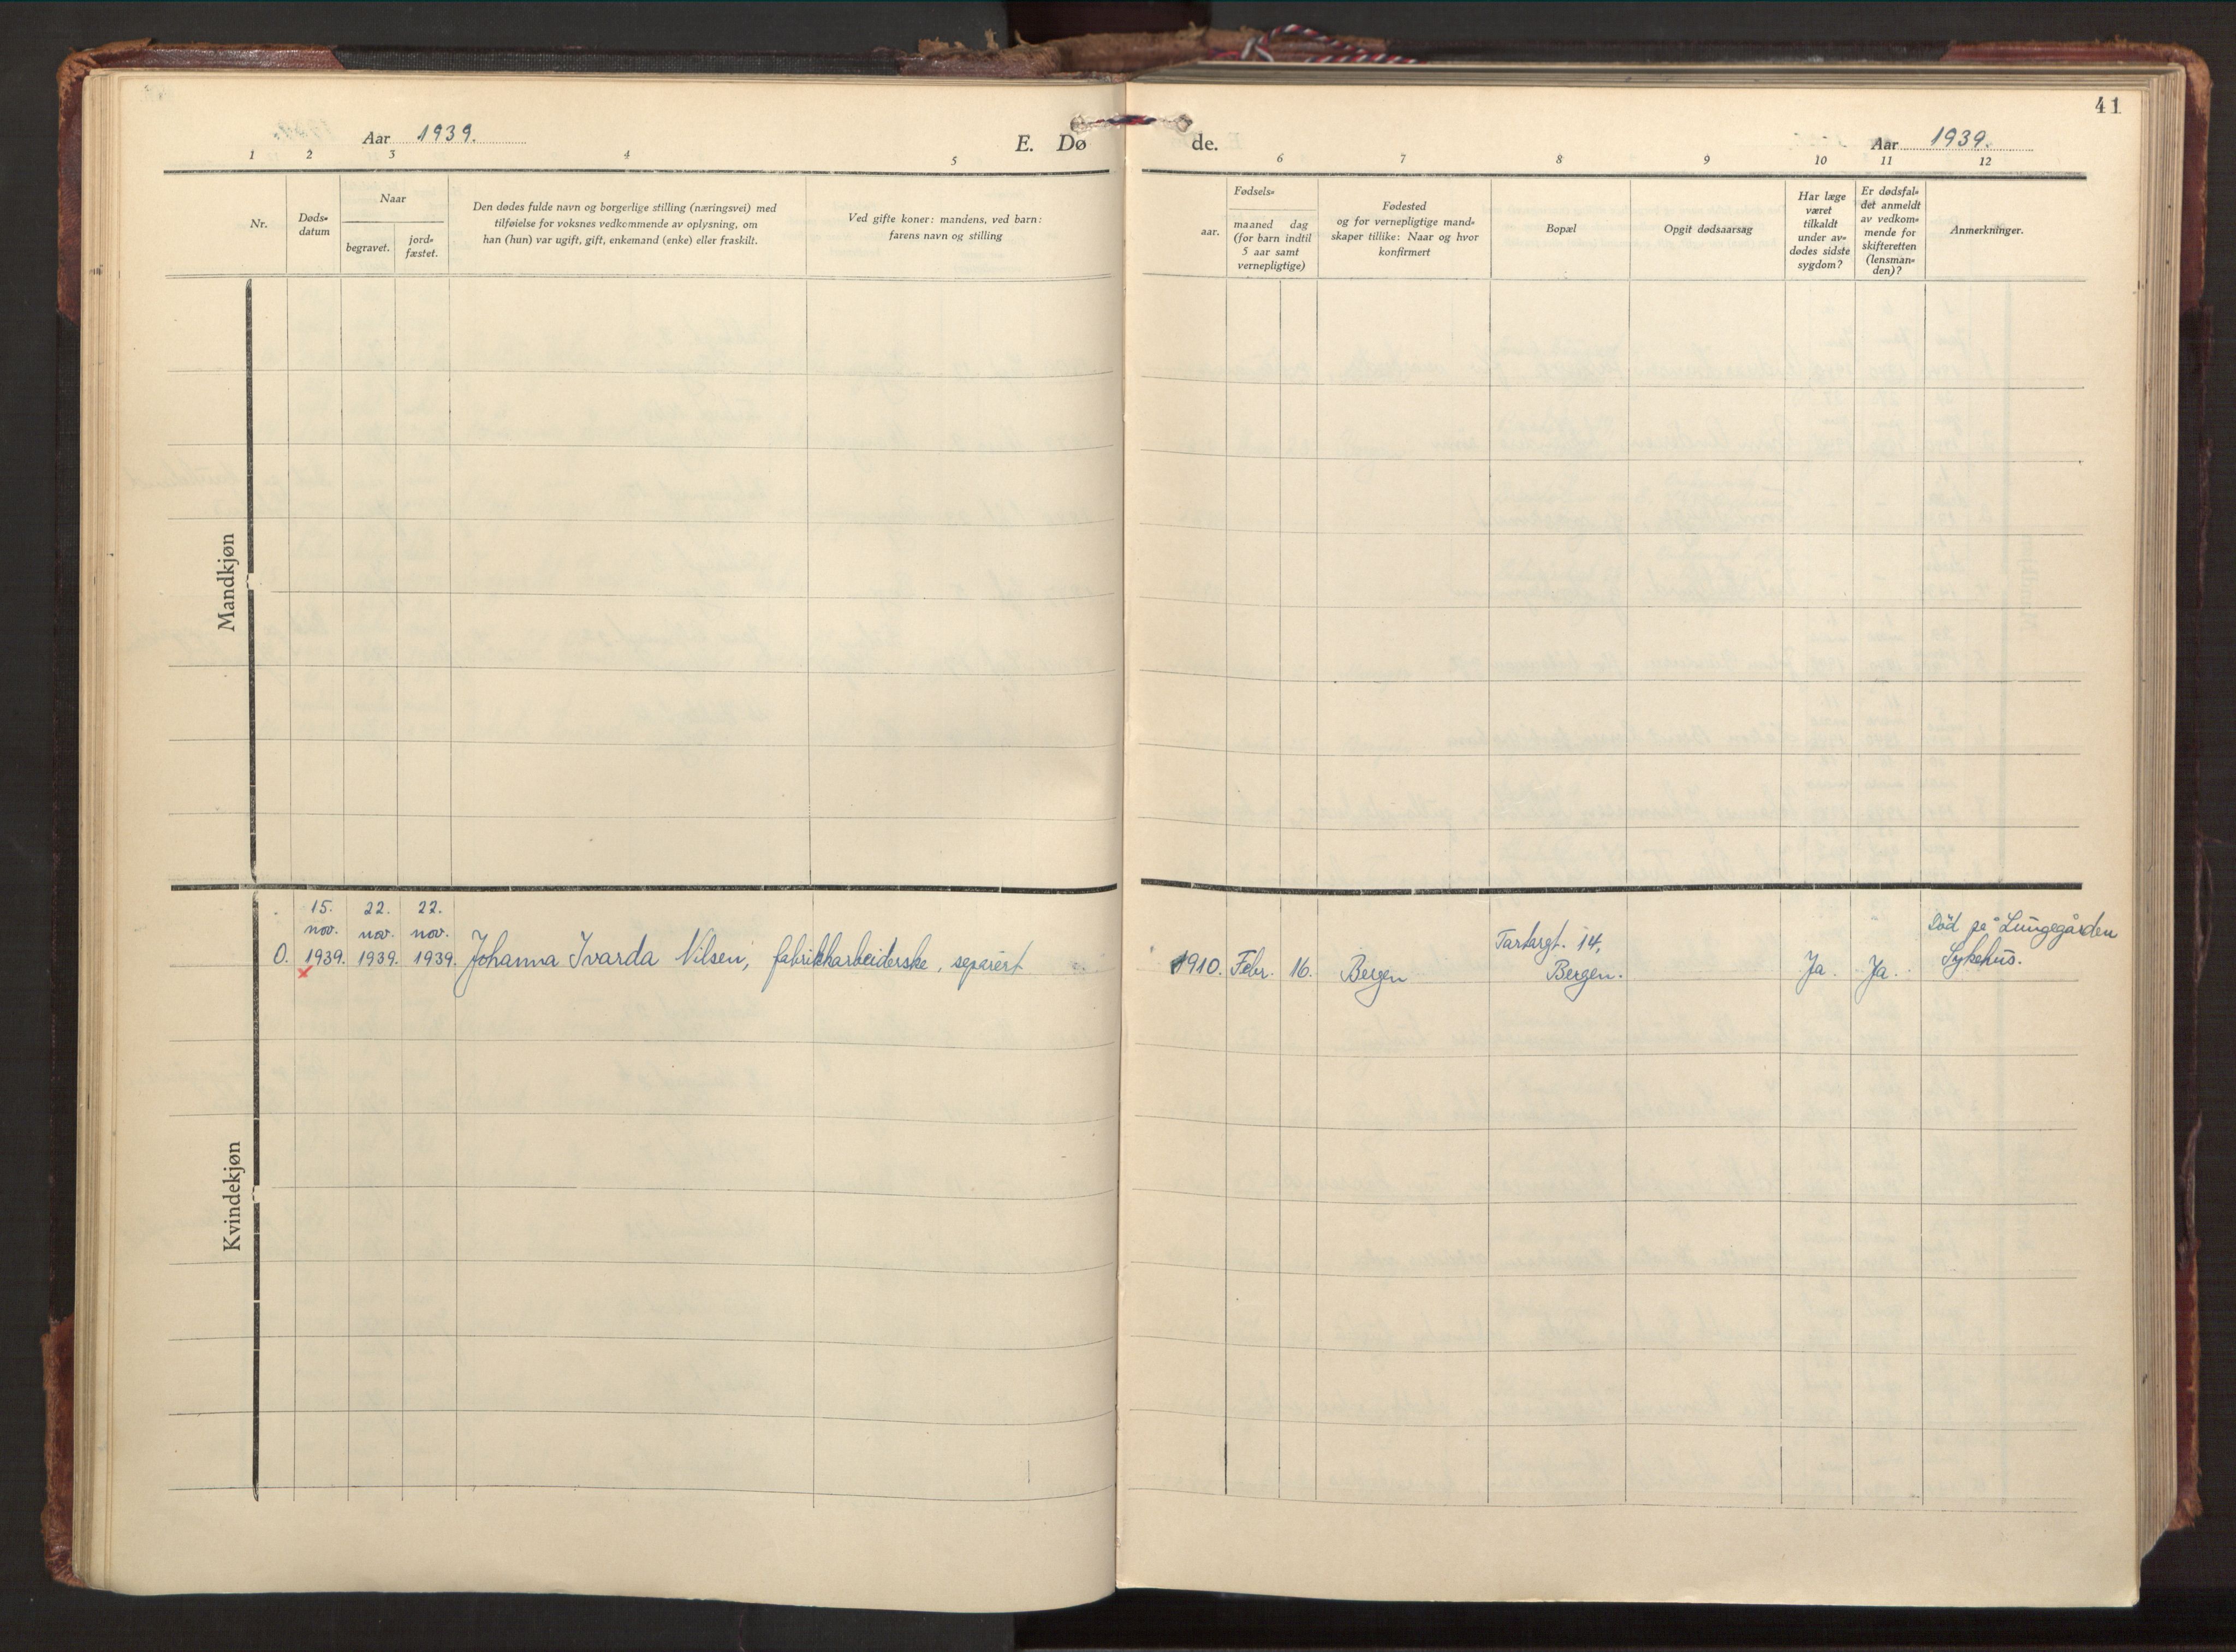 41
Aar 1939.
E. Dø
de.
Aar 1939.
1 2 3 4 5 6 7 8 9 10 11 12
Nr.
Døds-
datum
Naar
begravet.
jord-
fæstet.
Den dødes fulde navn og borgerlige stilling (næringsvei) med
tilføielse for voksnes vedkommende av oplysning, om
han (hun) var ugift, gift, enkemand (enke) eller fraskilt.
Ved gifte koner: mandens, ved barn:
farens navn og stilling
Fødsels-
aar.
maaned dag
(for barn indtil
5 aar samt
vernepligtige)
Fødested
og for vernepligtige mand-
skaper tillike: Naar og hvor
konfirmert
Bopæl
Opgit dødsaarsag
Har læge
været
tilkaldt
under av-
dødes sidste
sygdom?
Er dødsfal-
det anmeldt
av vedkom-
mende for
skifteretten
(lensman-
den)?
Anmerkninger.
Mandkjøn
Kvindekjøn
15. 22. 22.
nov. nov. nov.
0. 1939. 1939. 1939. Johanna Ivarda Nilsen, fabrikkarbeiderske, separert
1910. Febr. 16. Bergen
Tartargt. 14,
Bergen.
Ja. Ja.
Död på Lungegården
Sykehus.